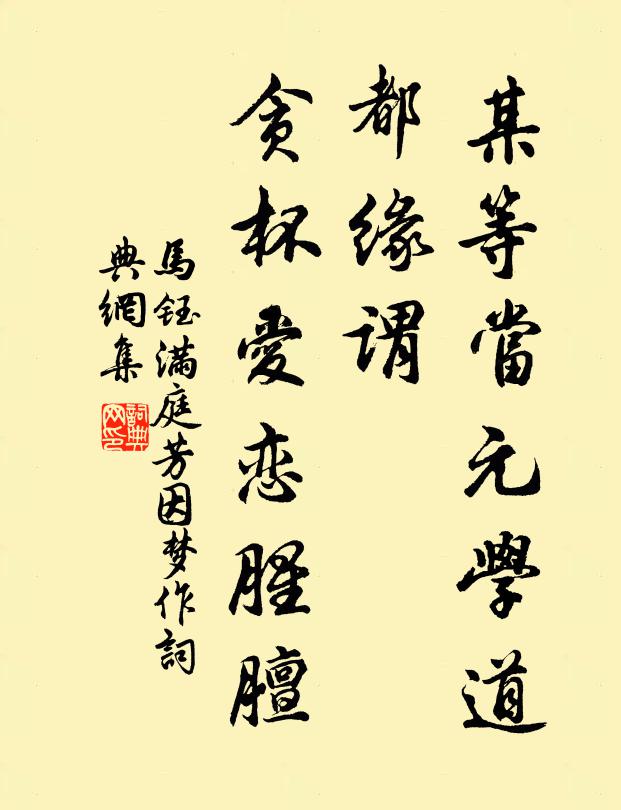 某等當元學道
都緣謂
貪杯愛恋腥膻
馬鈺滿庭芳因梦作詞
典網集
詞典网印